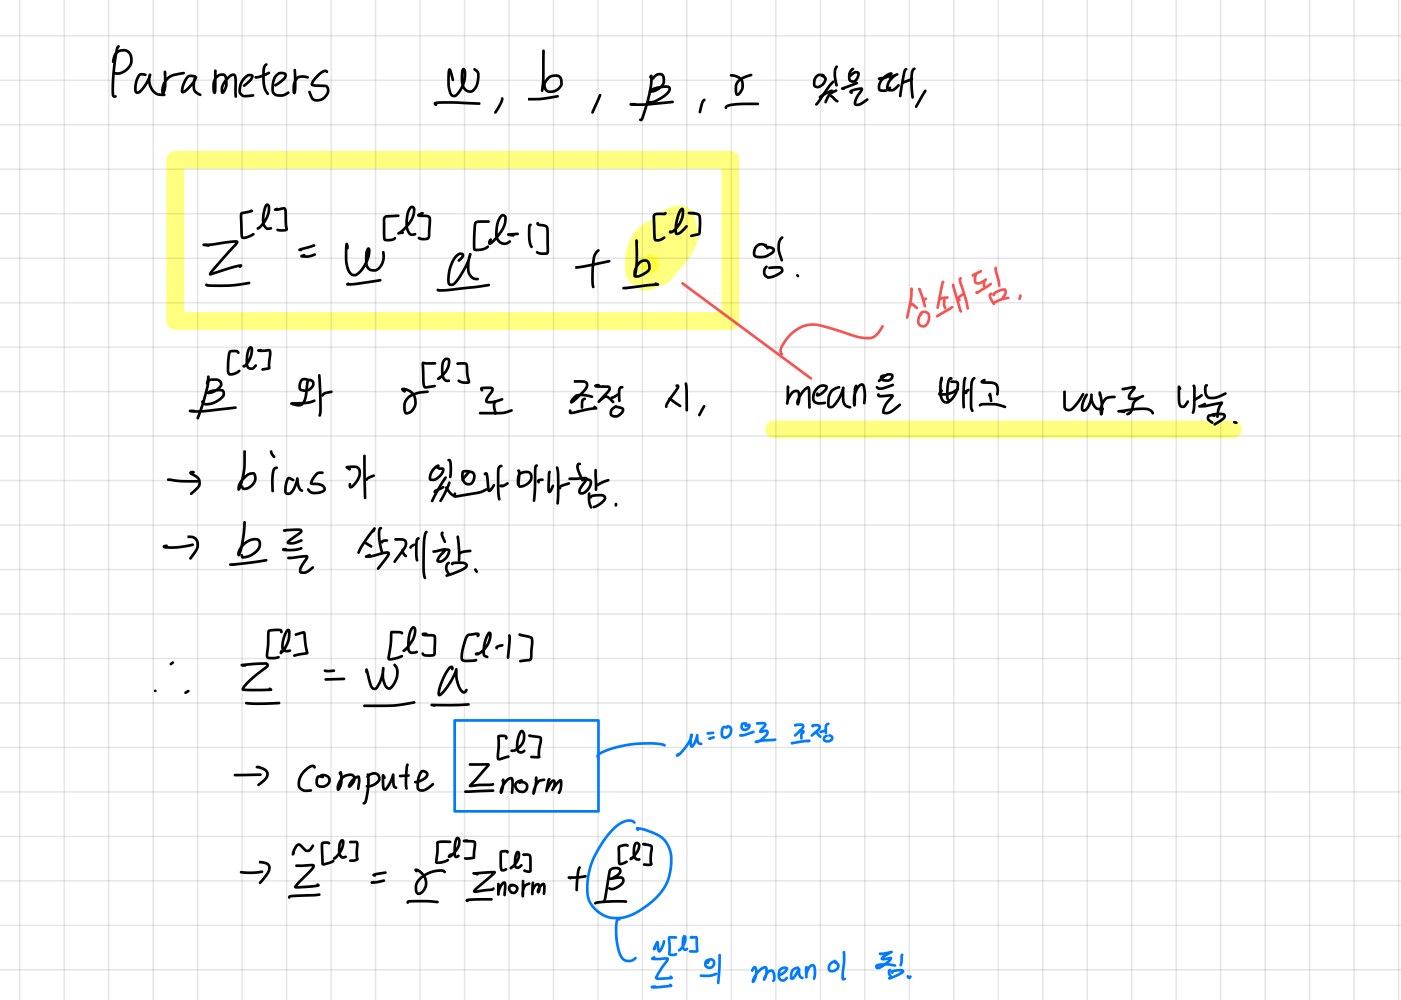 Parameters w, b, β, γ 있을때,
z^[l] = w^[l] a^[l-1] + b^[l] 임.
상쇄됨.
β^[l] 와 γ^[l]로 조정 시, mean을 빼고 var로 나눔.
→ bias가 있으나마나함.
→ b를 삭제함.
∴ z^[l] = w^[l] a^[l-1]
→ compute z^[l]_norm μ=0으로 조정
→ z̃^[l] = γ^[l] z^[l]_norm + β^[l]
z̃^[l]의 mean이 됨.